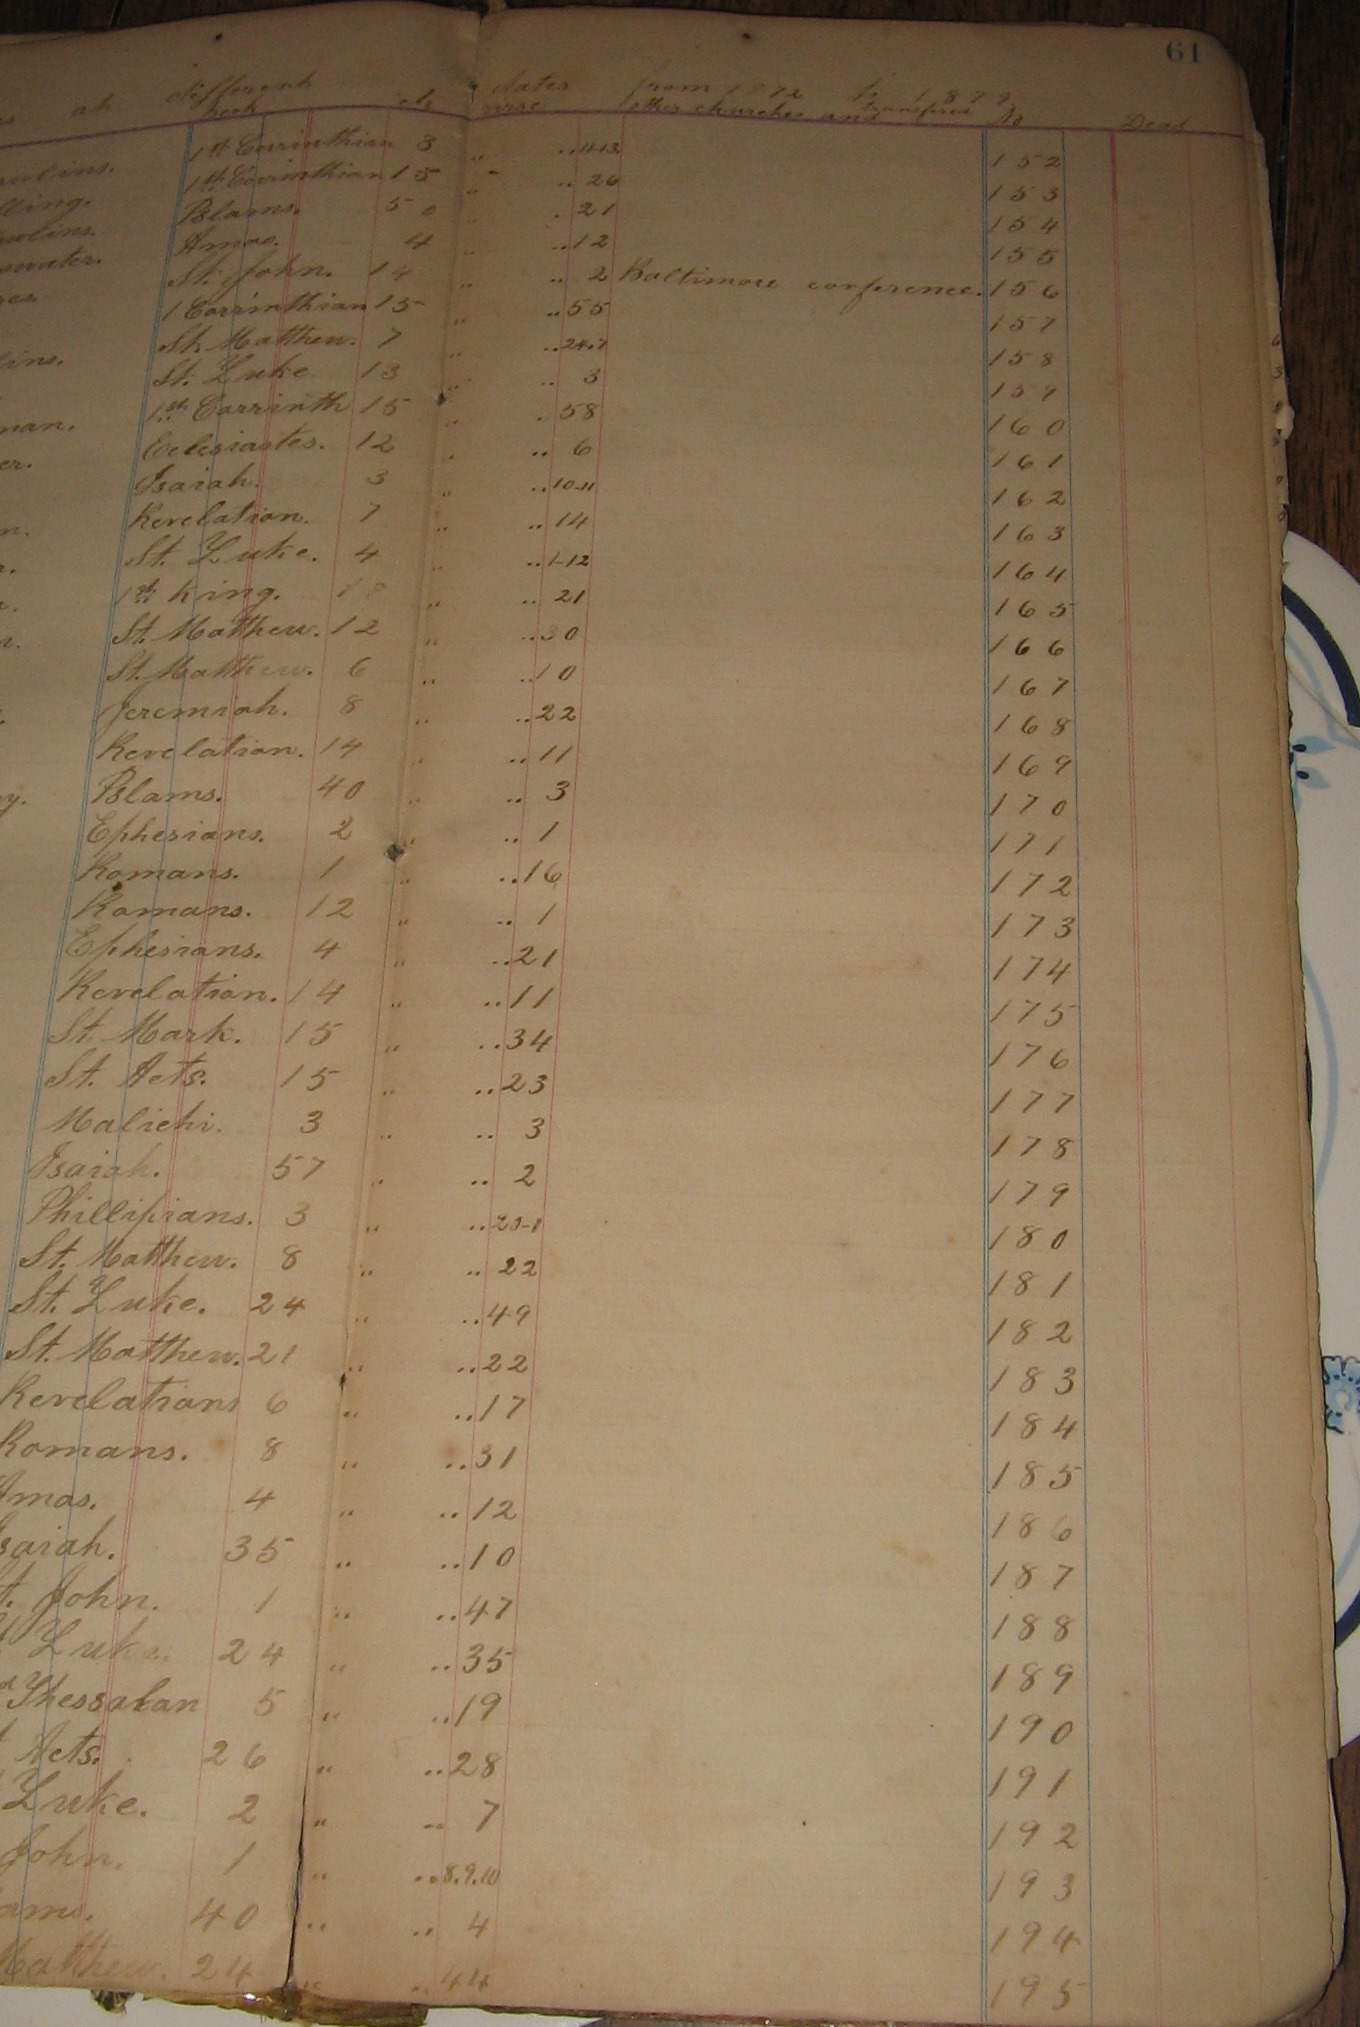 61
at different dates from 1872 to 1879
Book ch verse other churches and transfired No Dead
1st Corinthian 3 " .. 11-13 152
1st Corinthian 15 " .. 26 153
Pslams. 5 " .. 21 154
Amos. 4 " .. 12 155
St. John. 14 " .. 2 Baltimore conference. 156
1 Corrinthian 15 " .. 55 157
St. Matthew. 7 " .. 24.7 158
St. Luke 13 " .. 3 159
1st Corrinth 15 " .. 58 160
Eclesiastes. 12 " .. 6 161
Isaiah. 3 " .. 10-11 162
Revelation. 7 " .. 14 163
St. Luke. 4 " .. 1-12 164
1st King. " .. 21 165
St. Matthew. 12 " .. 30 166
St. Matthew. 6 " .. 10 167
Jeremiah. 8 " .. 22 168
Revelation. 14 " .. 11 169
Pslams. 40 " .. 3 170
Ephesians. 2 " .. 1 171
Romans. 1 " .. 16 172
Romans. 12 " .. 1 173
Ephesians. 4 " .. 21 174
Revelation. 14 " .. 11 175
St. Mark. 15 " .. 34 176
St. Acts. 15 " .. 23 177
Malichi. 3 " .. 3 178
Isaiah. 57 " .. 2 179
Phillipians. 3 " .. 180
St. Matthew. 8 " .. 22 181
St. Luke. 24 " .. 49 182
St. Matthew. 21 " .. 22 183
Revelations 6 " .. 17 184
Romans. 8 " .. 31 185
Amos. 4 " .. 12 186
Isaiah. 35 " .. 10 187
St. John. 1 " .. 47 188
St Luke. 24 " .. 35 189
Thessalan 5 " .. 19 190
Acts. 26 " .. 28 191
Luke. 2 " .. 7 192
John. 1 " .. 8.9.10 193
40 " .. 4 194
Matthew. 24 " .. 44 195